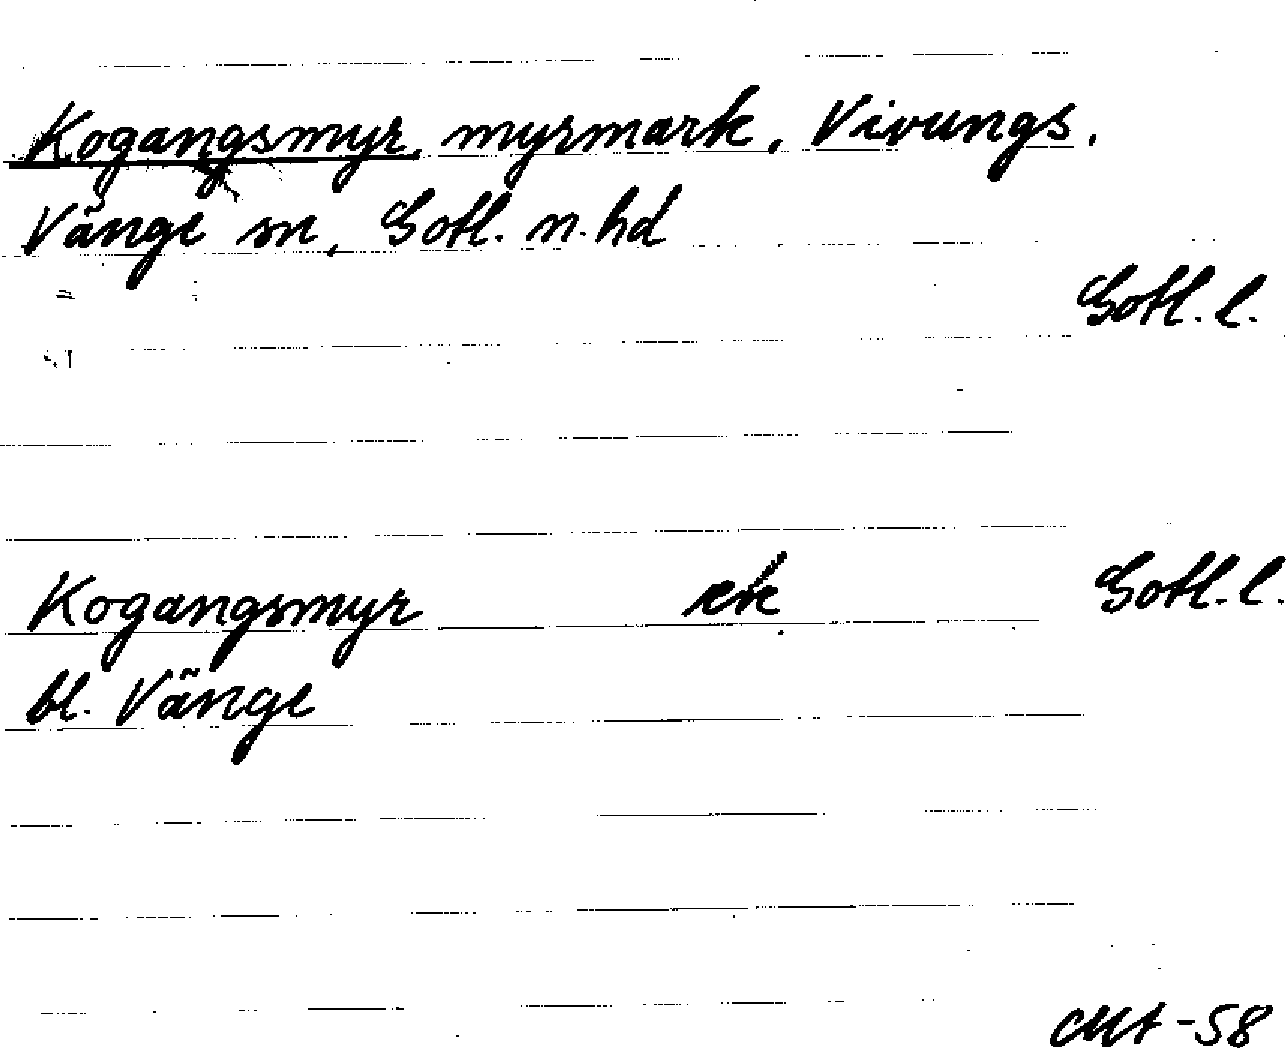 Kogangsmyr, myrmark, Vivungs,
Vänge sn, Gotl. n. hd
Gotl. l.
Kogangsmyr ek Gotl. l.
bl. Vänge
-58